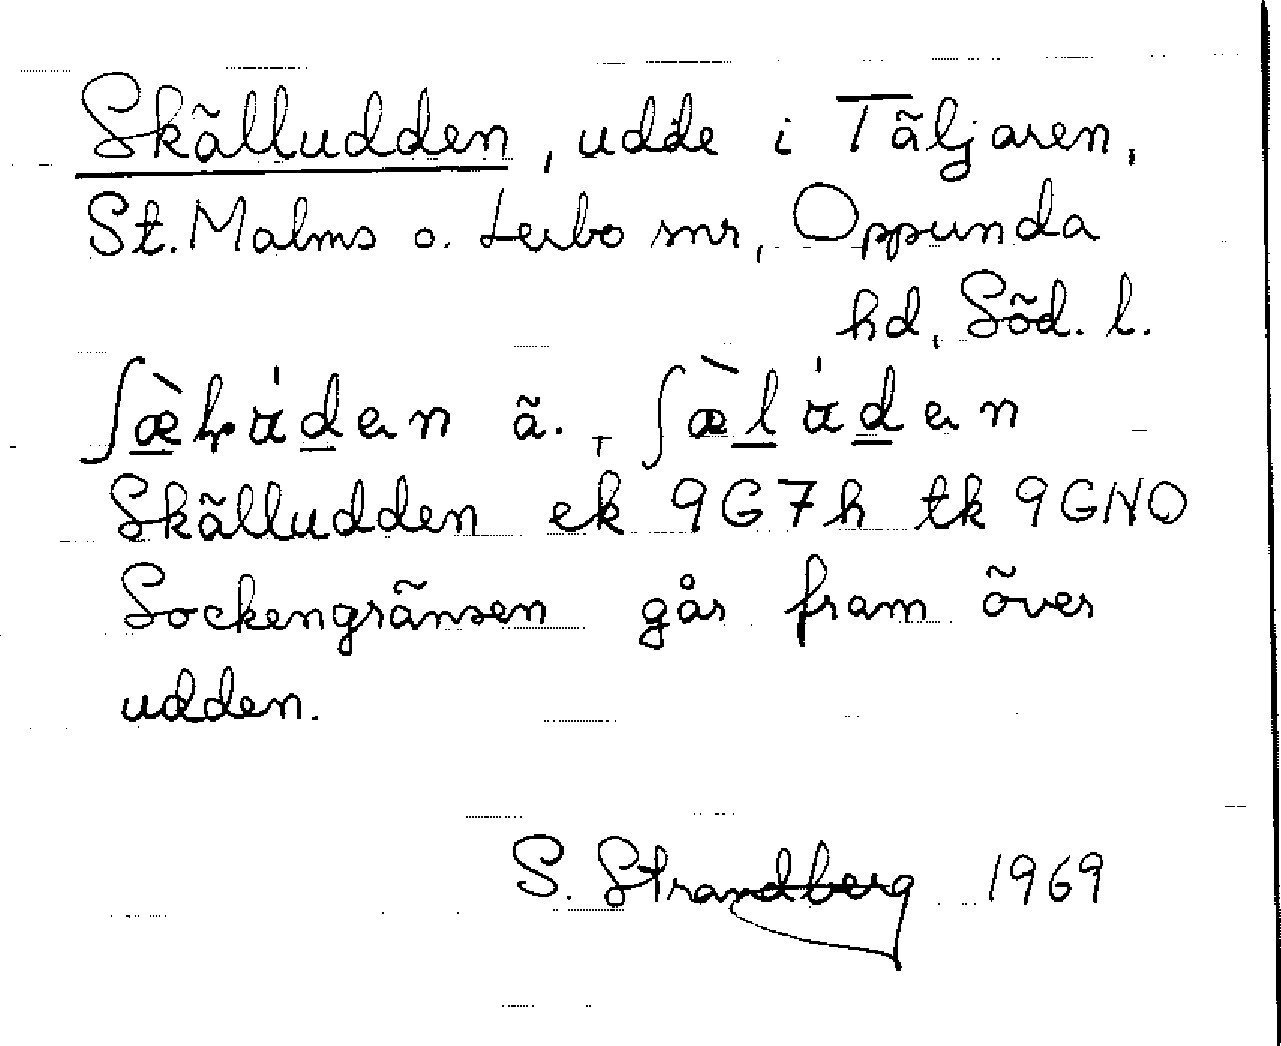 Skälludden, udde i Täljaren,
St. Malms o. Lerbo snr, Oppunda
hd, Söd. l.
ä.
Skälludden ek 9G7h tk 9GNO
Sockengränsen går fram över
udden.
S. Strandberg 1969